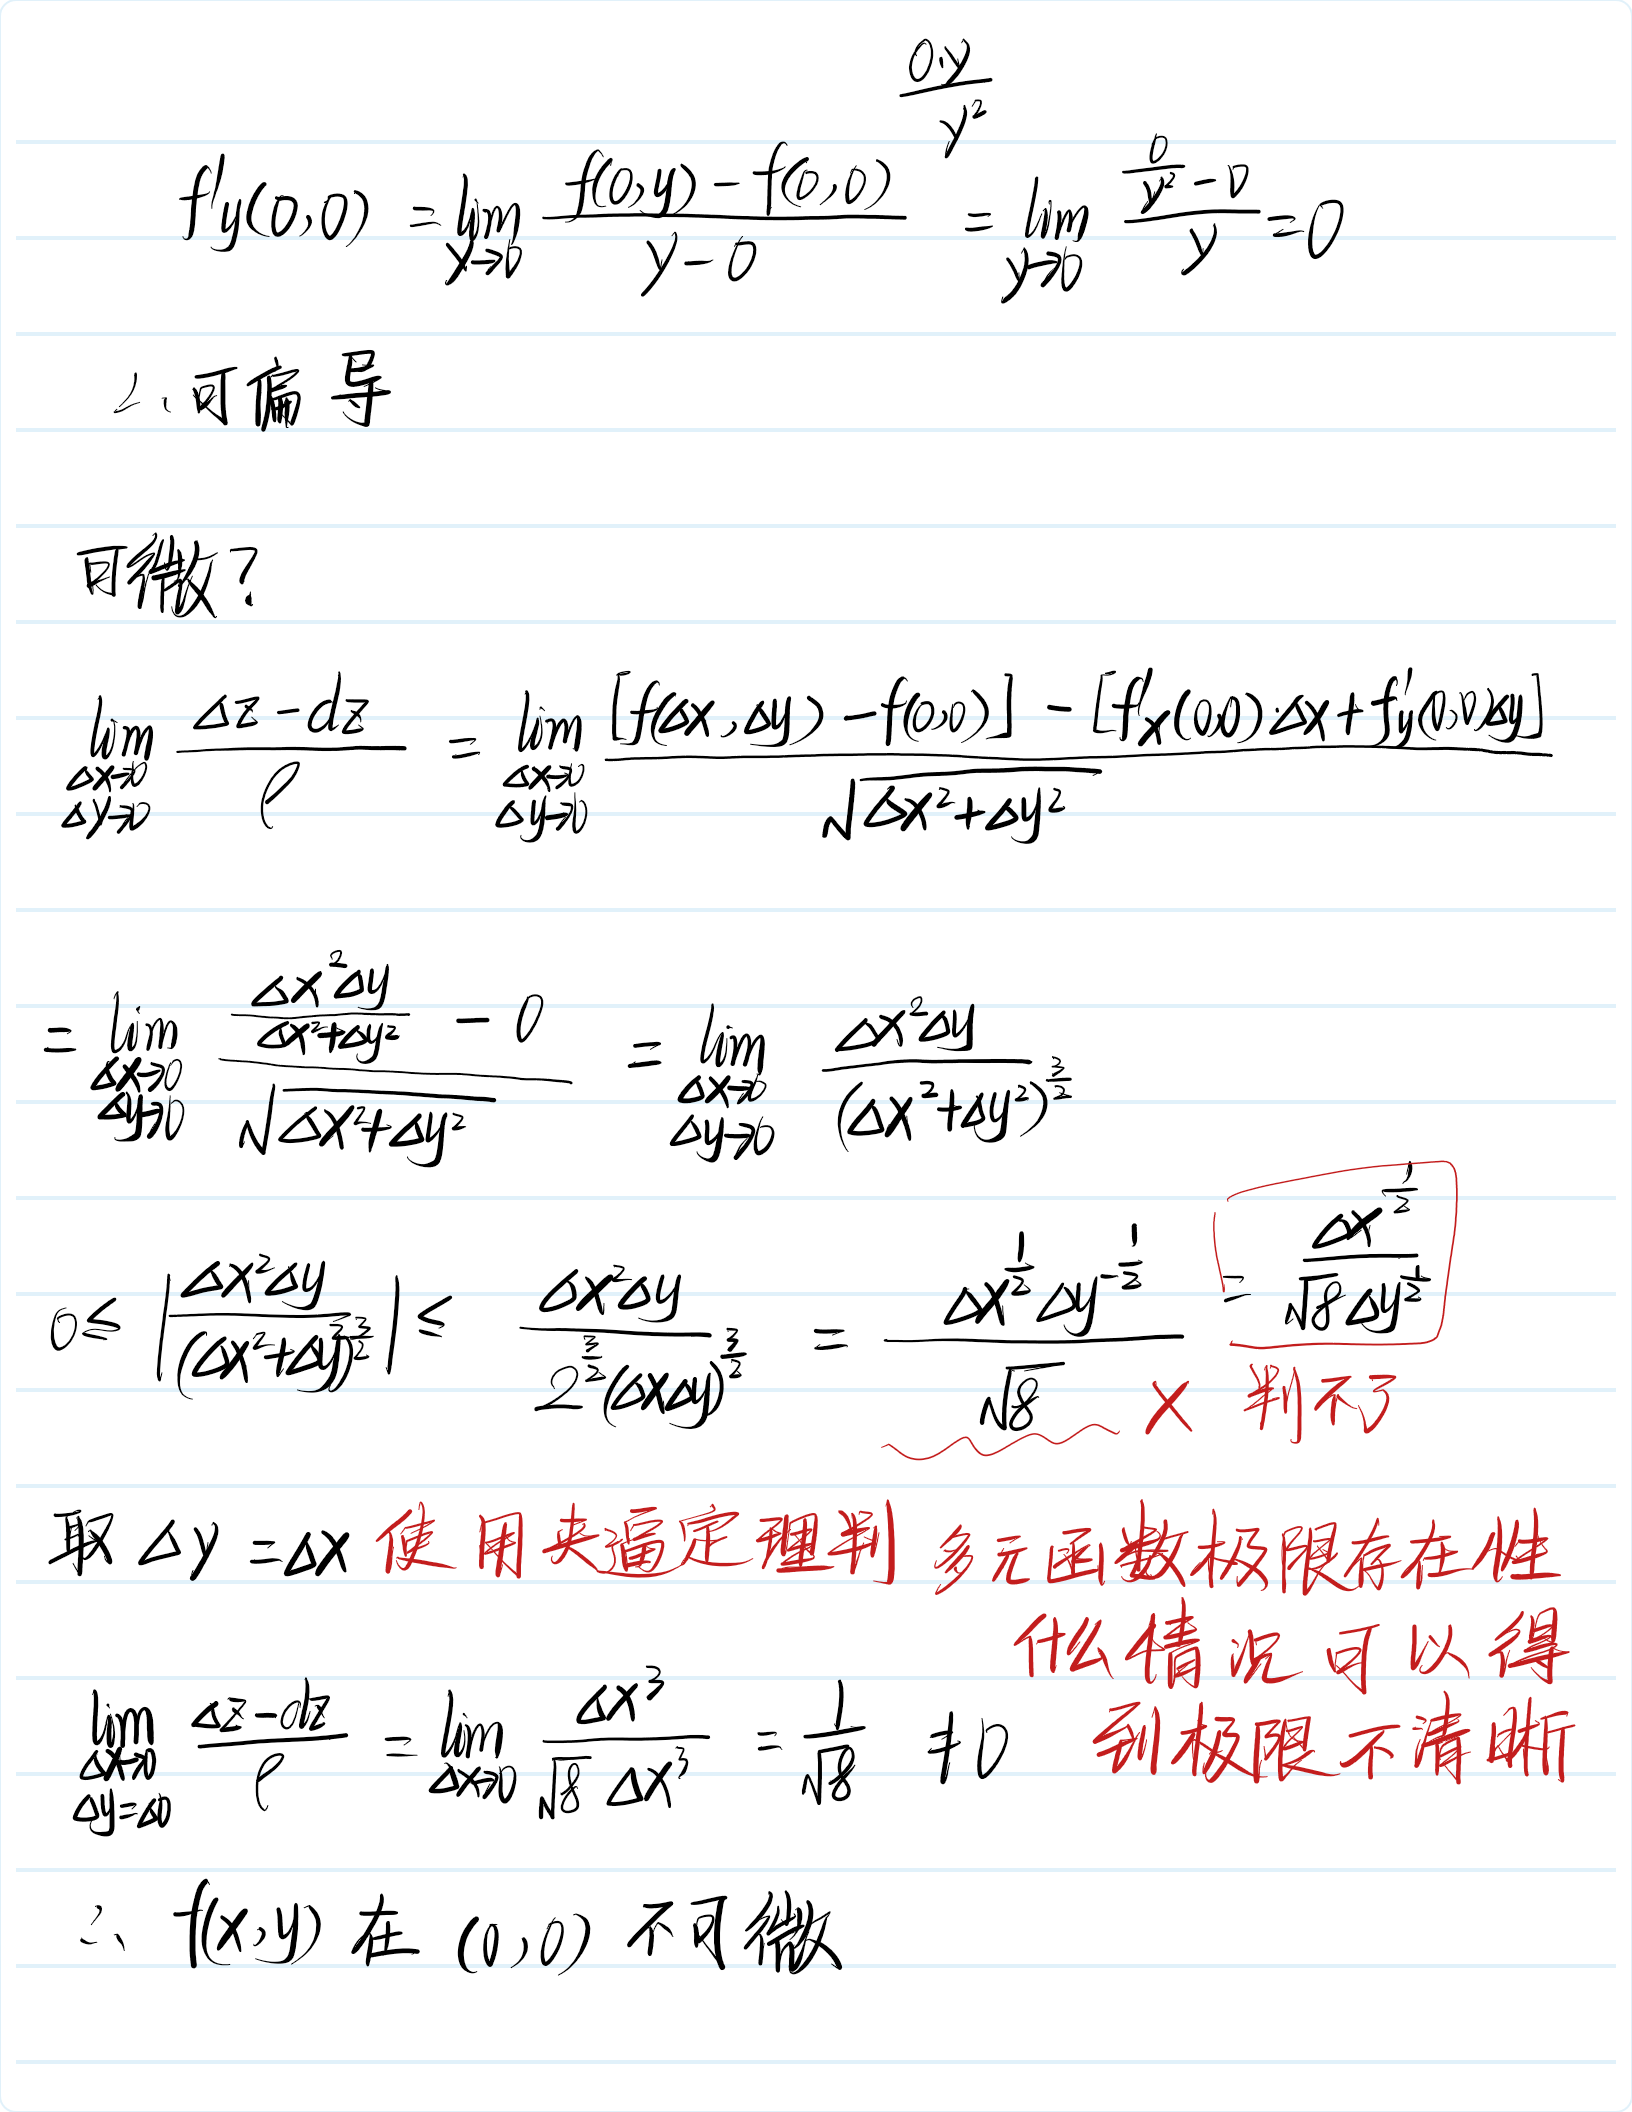 0·y/y²
f'y(0,0) = lim y→0 (f(0,y) − f(0,0))/(y−0) = lim y→0 (0/y² − 0)/y = 0
∴ 可偏导
可微?
lim Δx→0 Δy→0 (Δz−dz)/ρ = lim Δx→0 Δy→0 ([f(Δx,Δy) − f(0,0)] − [f'x(0,0)·Δx + f'y(0,0)Δy])/√(Δx²+Δy²)
= lim Δx→0 Δy→0 (Δx²Δy/(Δx²+Δy²) − 0)/√(Δx²+Δy²) = lim Δx→0 Δy→0 Δx²Δy/(Δx²+Δy²)^(3/2)
0 ≤ |Δx²Δy/(Δx²+Δy)^(3/2)| ≤ Δx²Δy/(2^(3/2)(ΔxΔy)^(3/2)) = Δx^(1/2)Δy^(−1/2)/√8 = Δx^(1/2)/(√8Δy^(1/2))
× 判不了
取 Δy = Δx 使用夹逼定理判多元函数极限存在性
什么情况可以得
到极限不清晰
lim Δx→0 Δy=Δ0 (Δz−dz)/ρ = lim Δx→0 Δx³/(√8 Δx³) = 1/√8 ≠ 0
∴ f(x,y) 在 (0,0) 不可微